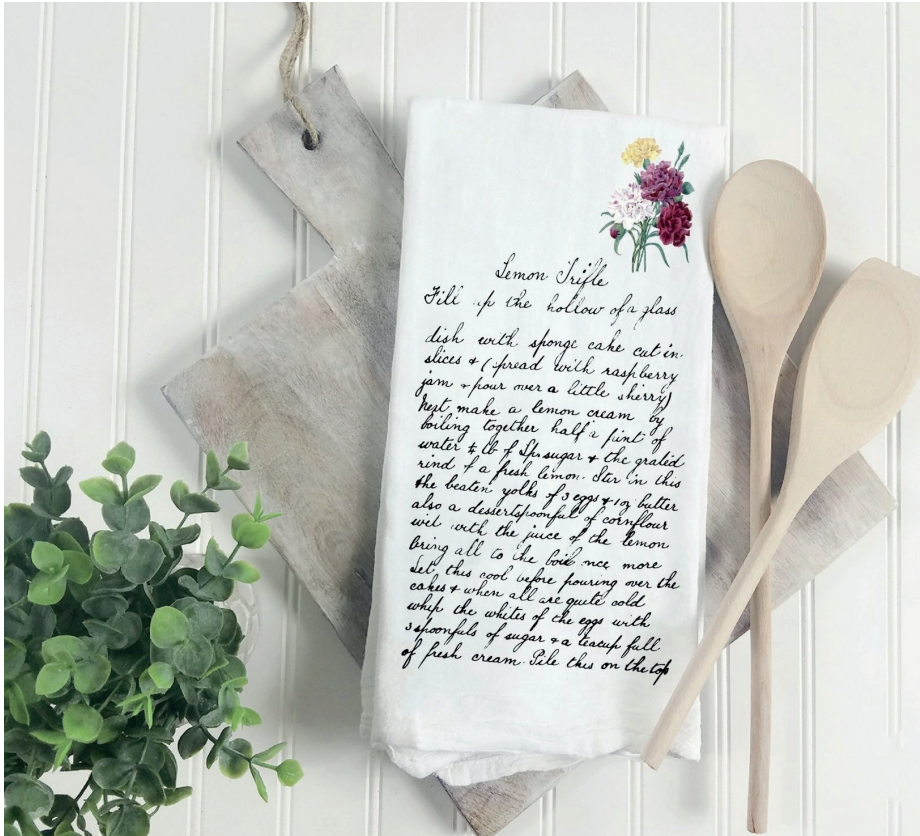 Lemon Trifle
Fill up the hollow of a glass
dish with sponge cake cut in
slices & (spread with raspberry
jam & pour over a little sherry)
Next make a lemon cream by
boiling together half a pint of
water ¼ lb of sugar & the grated
rind of a fresh lemon. Stir in this
the beaten yolks of 3 eggs & 1 oz butter
also a dessertspoonful of cornflour
wet with the juice of the lemon
Bring all to the boil once more
Let this cool before pouring over the
cakes & when all are quite cold
whip the whites of the eggs with
3 spoonfuls of sugar & a teacup full
of fresh cream. Pile this on the top